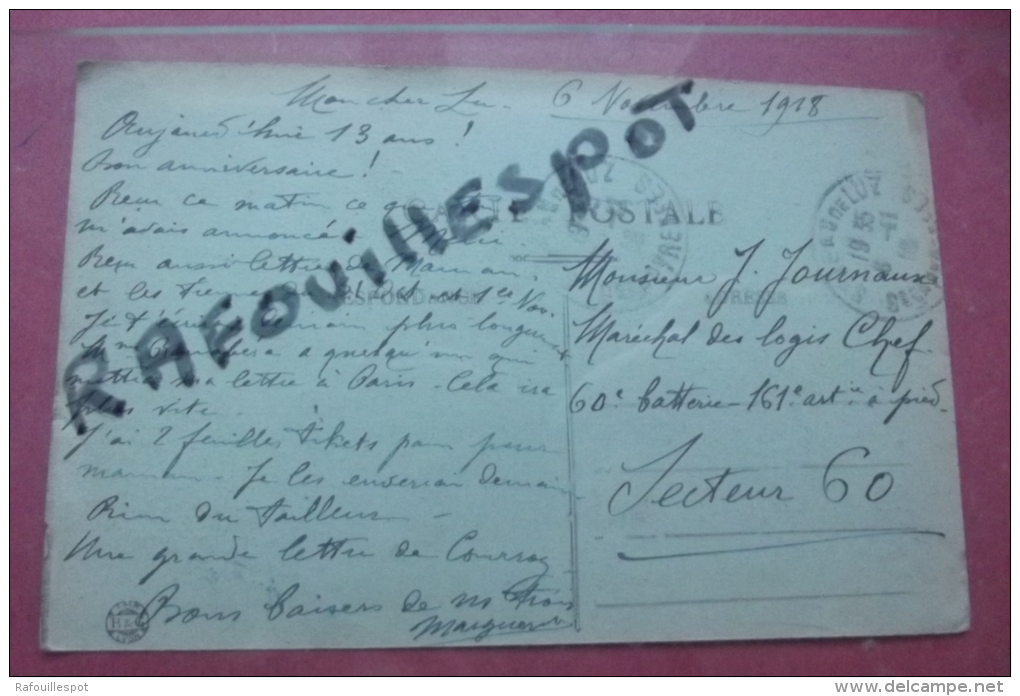 6 Novembre 1918
Mon cher
Aujourd'hui 13 ans !
Bon anniversaire !
Reçu ce matin ce que
m'avais annoncée
Reçu aussi lettre de Maman
et les tiennes du 31 oct. et 1er Nov.
plus longue
a quelqu'un qui
mettra ma lettre à Paris - Cela ira
plus vite -
J'ai 2 feuilles tikets pain pour
maman - Je les enverrai demain
Rien du tailleur -
Une grande lettre de
Bons baisers de ns trois
CARTE POSTALE
CORRESPONDANCE
ADRESSE
Monsieur J. Journaux
Maréchal des logis Chef
60e batterie - 161e artie à pied
Secteur 60
RAFOUILLESPOT
Rafouillespot
www.delcampe.net